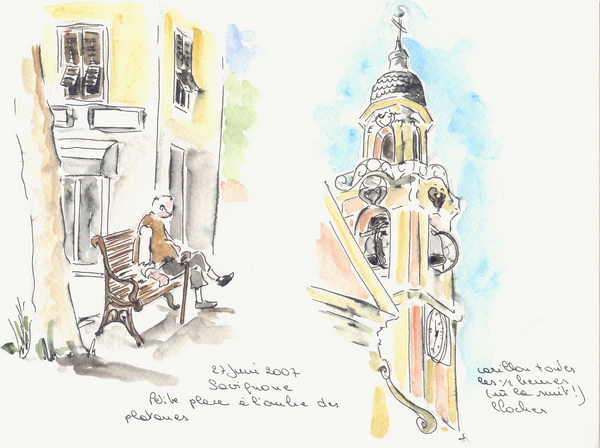 27 juin 2007
Savignone
Petite place à l'ombre des
platanes
carillon toutes
les 1/2 heures
(où la nuit!)
Clocher